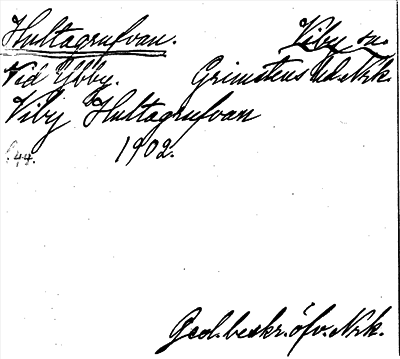 Hultagrufvan. Viby sn.
Vid Ybby. Grimstens hd. Nrk.
Viby Hultagrufvan
44. 1902.
Geol. beskr. öfv. Nrk.